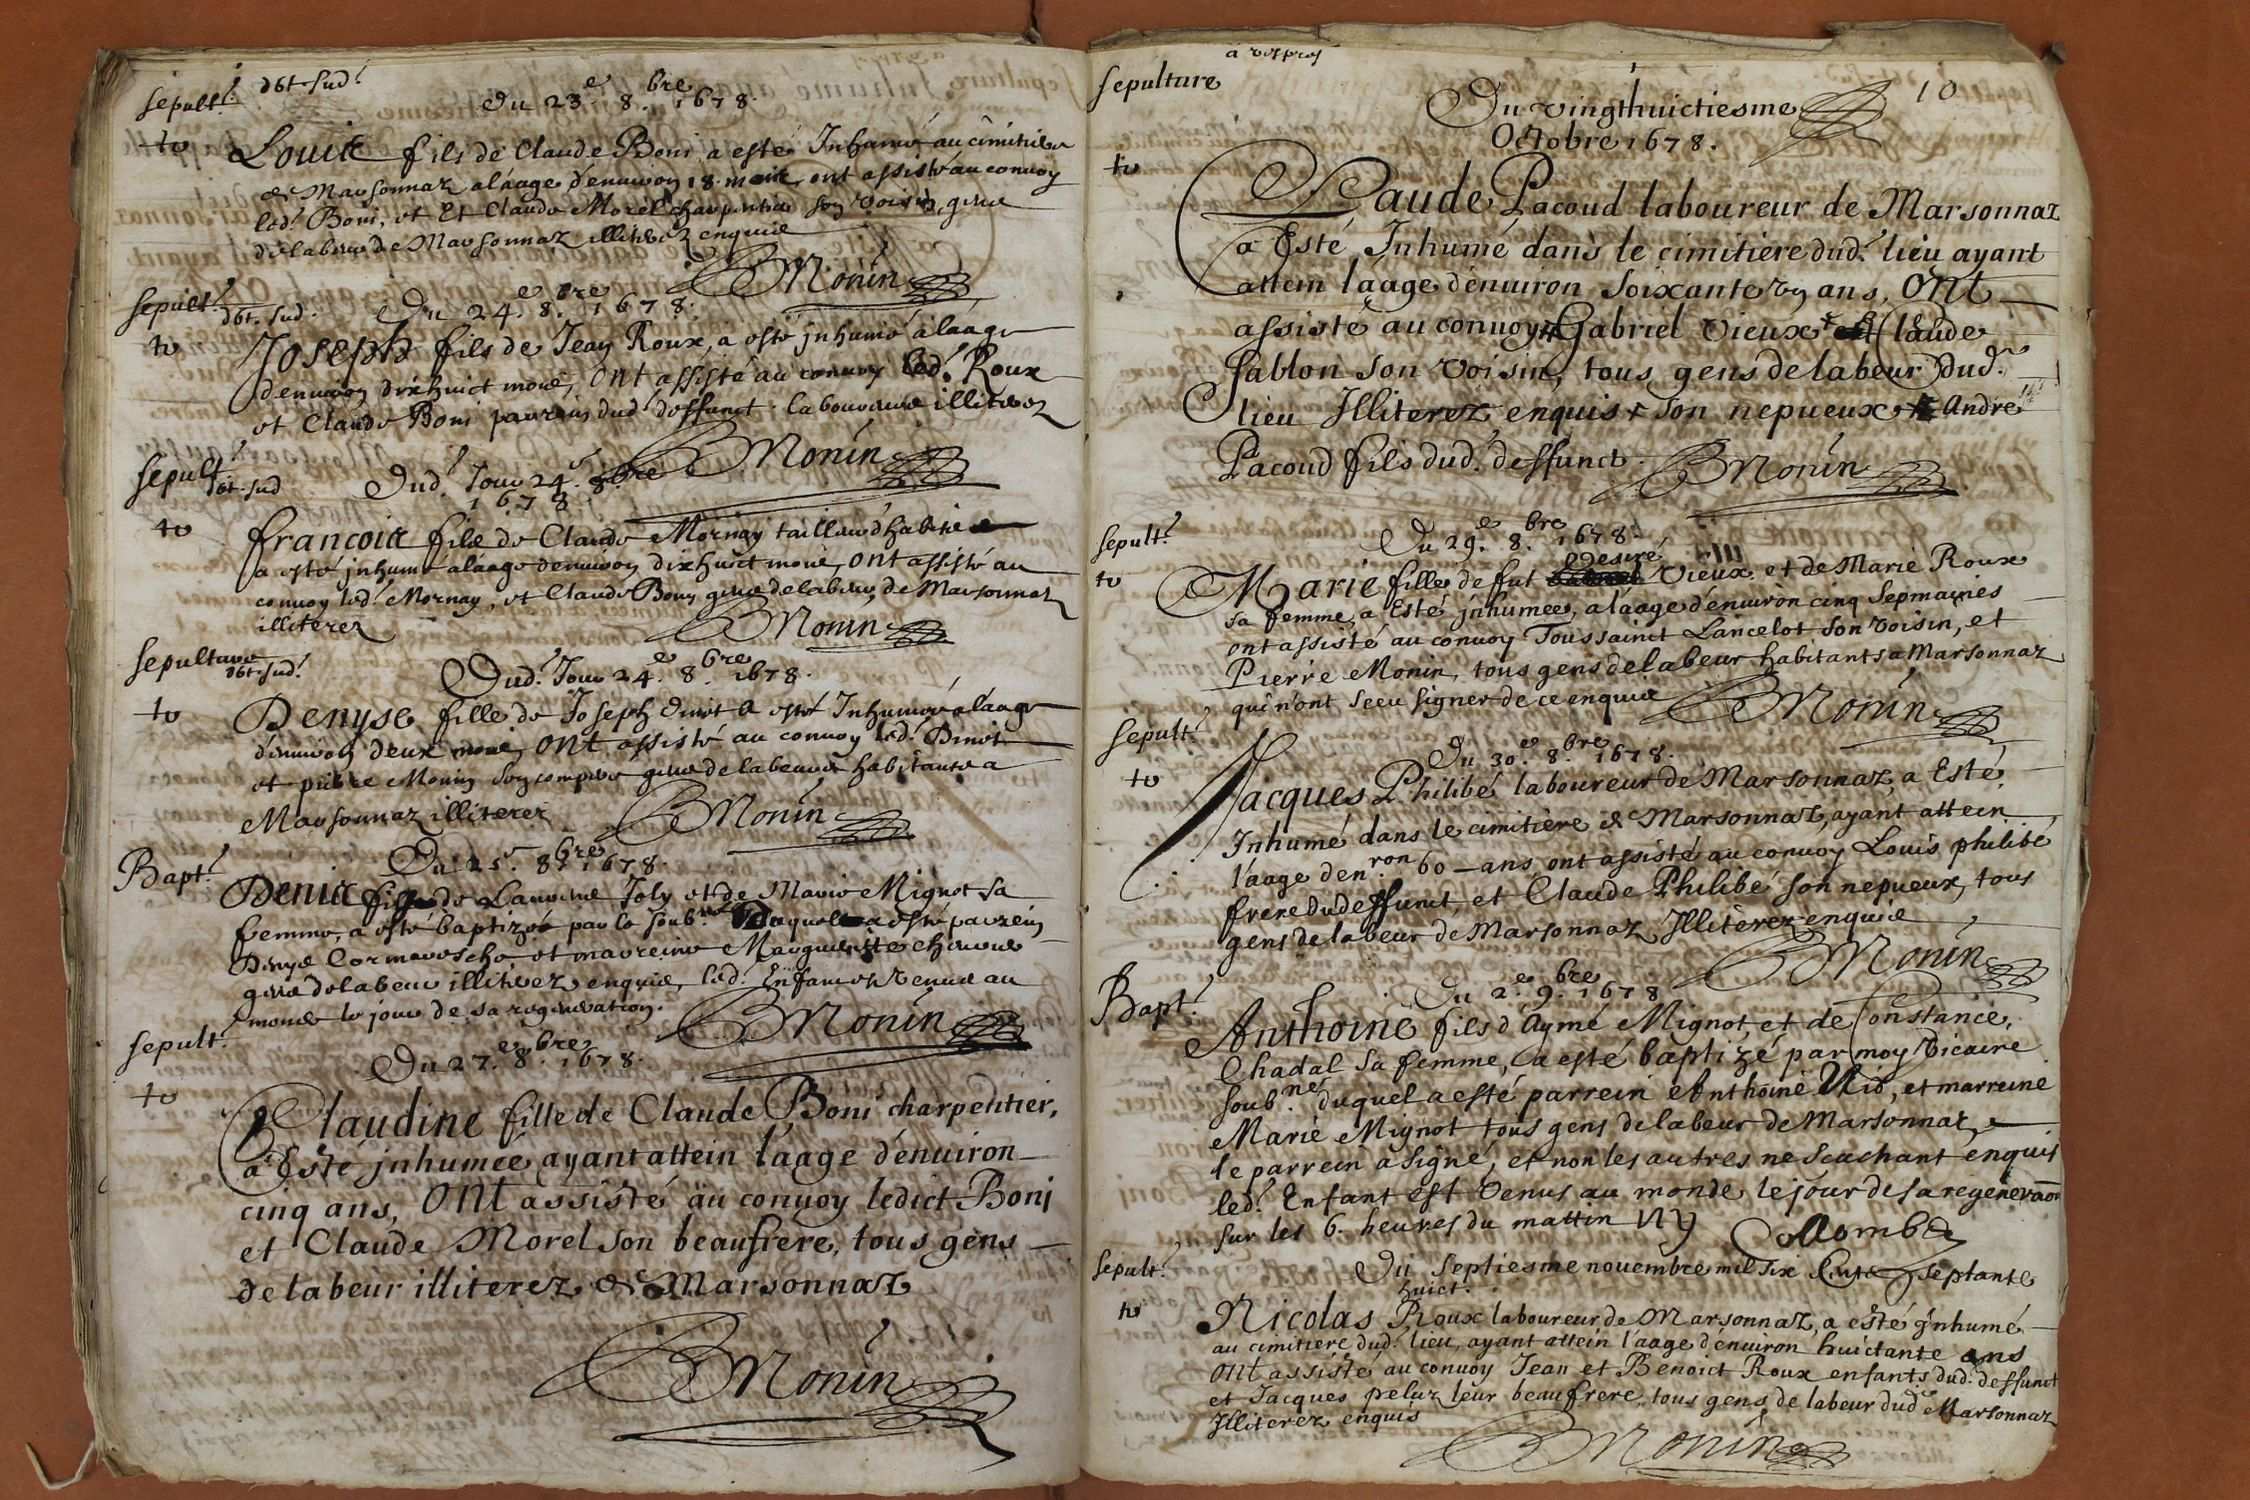 sepult.
Du 23e. 8.bre 1678.
Louis fils de Claude Boni a esté Inhumé au cimitiere
de Marsonnaz a l'aage d'enuiron 18 mois ont assisté au conuoy
led. Boni, et Claude Morel charpentier son voisin, gens
de labeur de Marsonnaz illiterez enquis
BMonin
sepult.
Du 24.e 8.bre 1678.
Joseph fils de Jean Roux, a esté jnhumé a l'aage
d'enuiron dixhuict mois, ont assisté au conuoy led. Roux
et Claude Boni parrein dud. deffunct laboureurs illiterez
BMonin
sepult.
Dud. Jour 24.e 8.bre
1678.
francois fils de Claude Mornay
a esté jnhumé a l'aage d'enuiron dixhuict mois, ont assisté au
conuoy led. Mornay, et Claude Bony gens de labeur de Marsonnaz
illiterez
BMonin
sepulture
Dud. Jour 24.e 8.bre 1678.
Denyse fille de Joseph a esté Inhumée a l'aage
d'enuiron deux mois, ont assisté au conuoy led.
et pierre Monin son compere gens de labeur habitants a
Marsonnaz illiterez
BMonin
Bapt.
Du 25.e 8.bre 1678.
Denis fils de Joly et de Marie Mignot sa
femme, a esté baptizé par le soub.né duquel a esté parrein
Denys et marreine Marguerite
gens de labeur illiterez enquis, led. Enfant est venu au
monde le jour de sa regeneration.
BMonin
sepult.
Du 27.e 8.bre 1678.
Claudine fille de Claude Boni charpentier,
a Esté jnhumée ayant attein l'aage d'enuiron
cinq ans, ont assisté au conuoy ledict Boni
et Claude Morel son beaufrere, tous gens
de labeur illiterez de Marsonnaz
BMonin
a vespres
sepulture
10
Du vingthuictiesme
Octobre 1678.
Claude Pacoud laboureur de Marsonnaz
a Esté Inhumé dans le cimitiere dud. lieu ayant
attein l'aage d'enuiron soixante vn ans, ont
assisté au conuoy Gabriel Vieux + Claude
sablon son voisin, tous gens de labeur dud.
lieu Illiterez enquis + son nepueux Andre
Pacoud fils dud. deffunct.
BMonin
sepult.
Du 29.e 8.bre 1678.
Desiré
Marie fille de fut Vieux et de Marie Roux
sa femme, a Esté jnhumée, a l'aage d'enuiron cinq sepmaines
ont assisté au conuoy Toussainct Lancelot son voisin, et
Pierre Monin, tous gens de labeur habitants a Marsonnaz
qui n'ont sceu signer de ce enquis
BMonin
sepult.
Du 30.e 8.bre 1678.
Jacques Philibé laboureur de Marsonnaz, a Esté
Inhumé dans le cimitière de Marsonnaz, ayant attein
l'aage d'en.ron 60 ans, ont assisté au conuoy Louis philibé
frere du deffunct, et Claude Philibé son nepueux, tous
gens de labeur de Marsonnaz Illiterez enquis
BMonin
Bapt.
Du 2.e 9.bre 1678
Anthoine fils d'Aymé Mignot, et de Constance
Chadal sa femme, a esté baptizé par moy Vicaire
soub.né duquel a esté parrein Anthoine Nio, et marreine
Marie Mignot tous gens de labeur de Marsonnaz
le parrein a signé, et non les autres ne scachant enquis
led. Enfant est venus au monde le jour de sa regeneraõn
sur les 6. heures du mattin
sepult.
Du septiesme nouembre mil six cents septante
huict.
Nicolas Roux laboureur de Marsonnaz, a esté jnhumé
au cimitiere dud. lieu, ayant attein l'aage d'enuiron huictante ans
ont assisté au conuoy Jean et Benoict Roux enfants dud. deffunct
et Jacques peluz leur beaufrere, tous gens de labeur dud. Marsonnaz
Illiterez enquis
BMonin